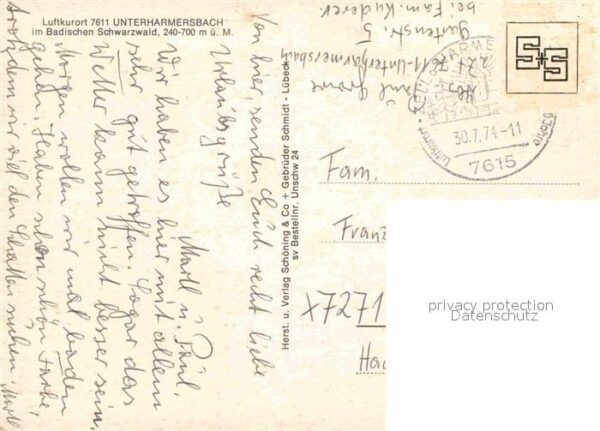 Luftkurort 7611 UNTERHARMERSBACH
im Badischen Schwarzwald, 240-700 m ü. M.
Von hier, senden Euch recht liebe
Urlaubsgrüße
Martl u. Paul.
Wir haben es hier mit allem
sehr gut getroffen. Sogar das
Wetter kann nicht besser sein,
Morgen wollen wir mal baden
gehen. Haben schon schön Farbe,
trotzdem wir viel den Schatten suchen. Martl
Herst. u. Verlag Schöning & Co + Gebrüder Schmidt - Lübeck
sv Bestellnr. Unschw 24
Abs.
7611-Unterharmersbach
Gartenstr. 5
bei Fam.
30.7.74-11
7615
Luftkurort
Fam.
Franz
x7271
Ha
privacy protection
Datenschutz